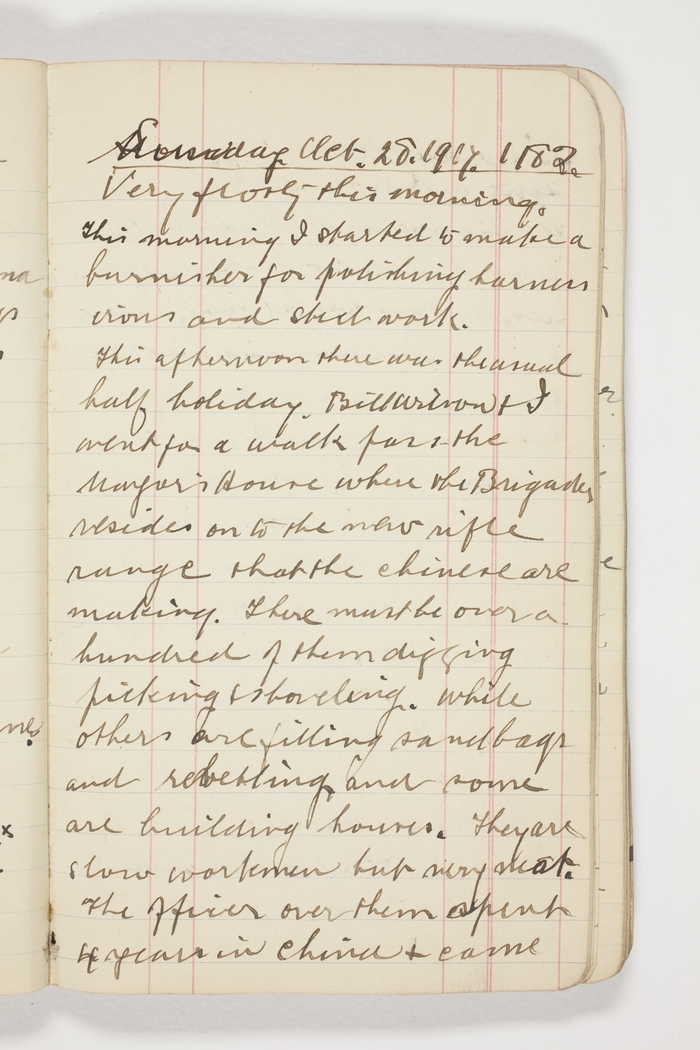 Sunday Oct. 28. 1917. 1182.
Very frosty this morning.
This morning I started to make a
burnisher for polishing harness
irons and steel work.
This afternoon there was the usual
half holiday. Bill & I
went for a walk pass the
Mayor's House where the Brigadier
resides on to the new rifle
range that the chinese are
making. There must be over a
hundred of them digging
picking & shoveling. while
others are filling sandbags
and rebetting and some
are building houses. They are
slow workmen but very neat.
The officer over them spent
4 years in China & came